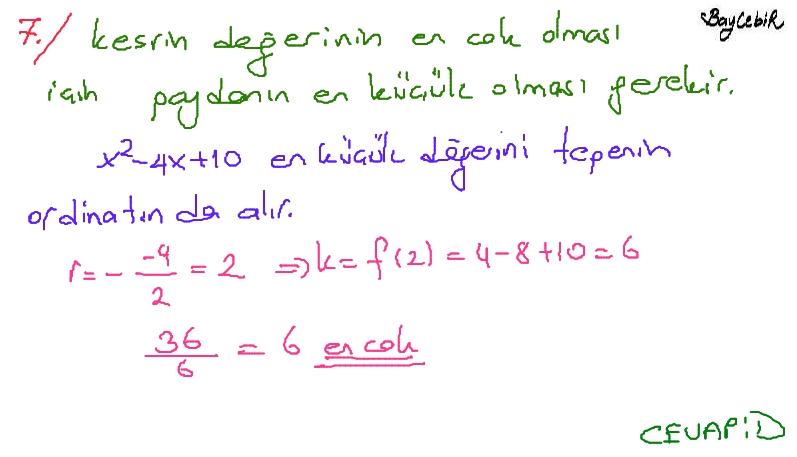 BayCebir
7./ kesrin değerinin en çok olması
için paydanın en küçük olması gerekir.
x²-4x+10 en küçük değerini tepenin
ordinatın da alır.
r = - -4/2 = 2 ⇒ k = f(2) = 4-8+10 = 6
36/6 = 6 en çok
CEVAP:D